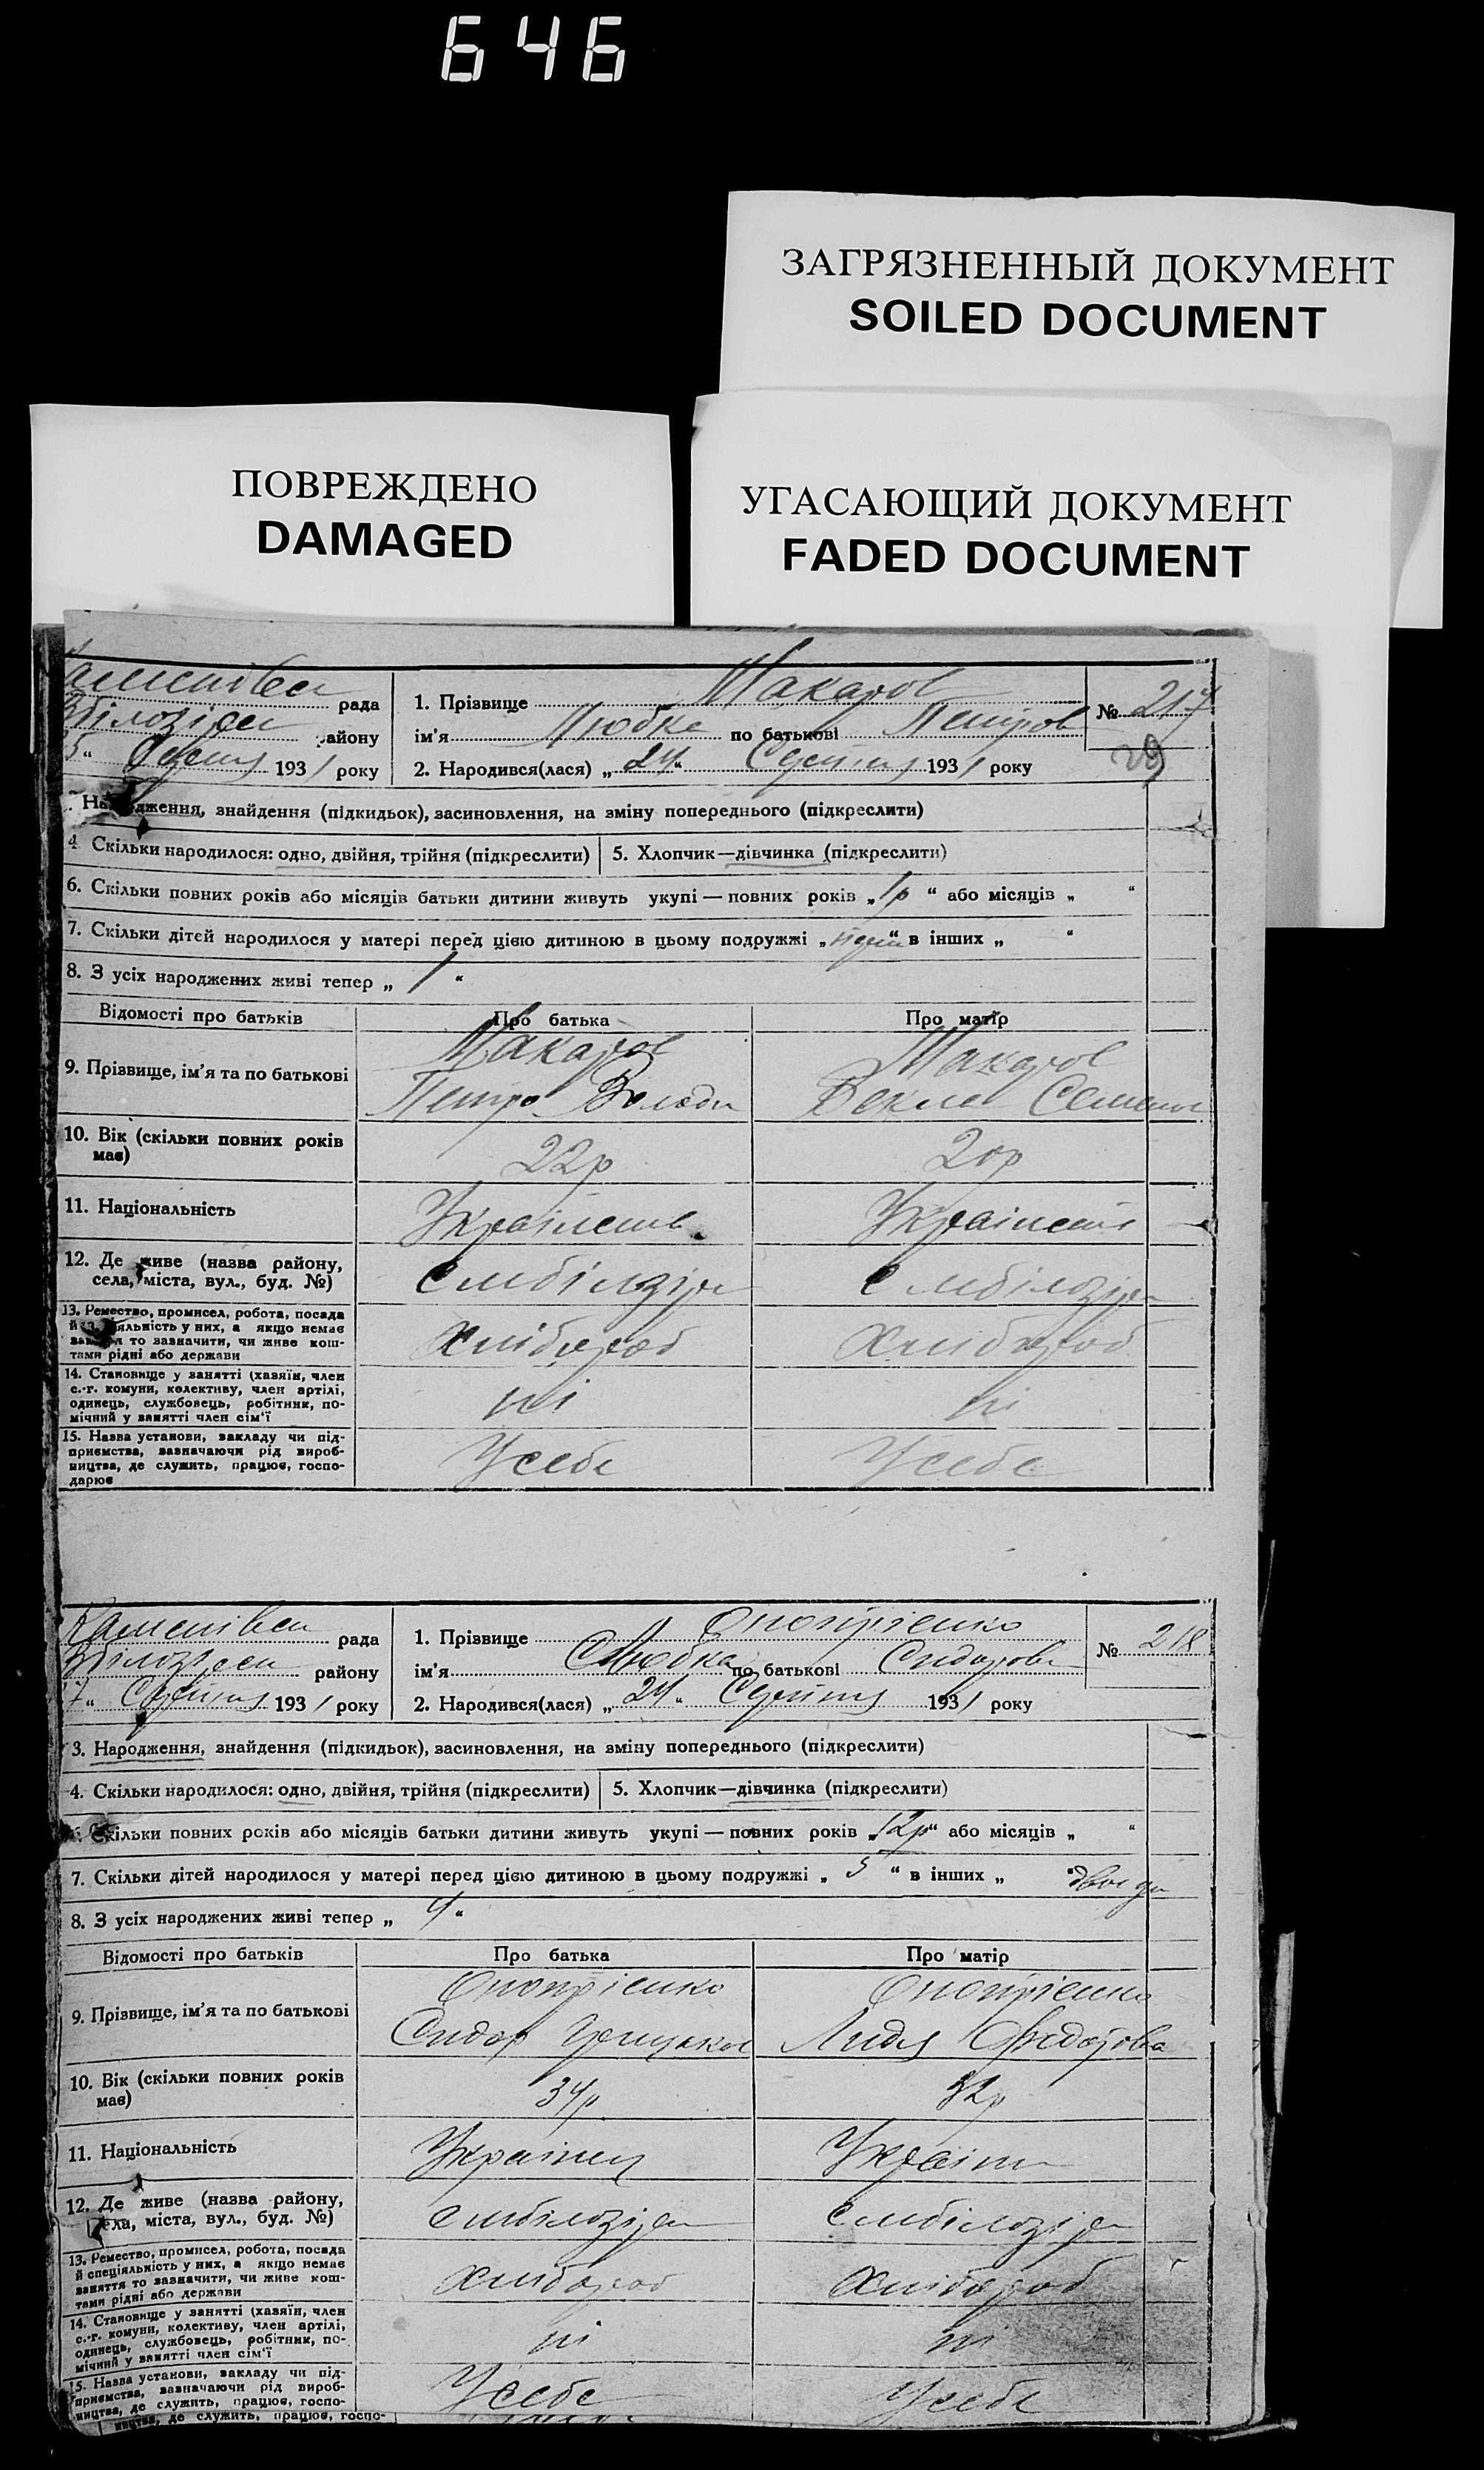 646
ЗАГРЯЗНЕННЫЙ ДОКУМЕНТ
SOILED DOCUMENT
ПОВРЕЖДЕНО
DAMAGED
УГАСАЮЩИЙ ДОКУМЕНТ
FADED DOCUMENT
рада
району
193 1 року
1. Прізвище Макаров
ім'я Любка по батькові Петров
2. Народився(лася) „ 24 “ Серпня 193 1 року
№ 217
29
дження, знайдення (підкидьок), засиновлення, на зміну попереднього (підкреслити)
4 Скільки народилося: одно, двійня, трійня (підкреслити)
5. Хлопчик—дівчинка (підкреслити)
6. Скільки повних років або місяців батьки дитини живуть укупі — повних років „ 1р “ або місяців „ “
7. Скільки дітей народилося у матері перед цією дитиною в цьому подружжі „ “ в інших „ “
8. З усіх народжених живі тепер „ 1 “
Відомості про батьків
Про батька
Про матір
9. Прізвище, ім'я та по батькові
Макаров
Петро
Макаров
Векла Семенов
10. Вік (скільки повних років має)
22р
20р
11. Національність
12. Де живе (назва району,
села, міста, вул., буд. №)
13. Ремество, промисел, робота, посада
яльність у них, а якщо немає
то зазначити, чи живе кош-
тами рідні або держави
Хлібороб
Хлібороб
14. Становище у занятті (хазяїн, член
с.-г. комуни, колективу, член артілі,
одинець, службовець, робітник, по-
мічний у занятті член сім'ї
ні
ні
15. Назва установи, закладу чи під-
приємства, зазначаючи рід вироб-
ництва, де служить, працює, госпо-
дарює
У себе
У себе
рада
району
Серпня 193 1 року
1. Прізвище Онопрієнко
ім'я Любка по батькові Сидорова
2. Народився(лася) „ 24 “ Серпня 193 1 року
№ 218
3. Народження, знайдення (підкидьок), засиновлення, на зміну попереднього (підкреслити)
4. Скільки народилося: одно, двійня, трійня (підкреслити)
5. Хлопчик—дівчинка (підкреслити)
Скільки повних років або місяців батьки дитини живуть укупі — повних років „ 12р “ або місяців „ “
7. Скільки дітей народилося у матері перед цією дитиною в цьому подружжі „ 5 “ в інших „
8. З усіх народжених живі тепер „ 4 “
Відомості про батьків
Про батька
Про матір
9. Прізвище, ім'я та по батькові
Онопрієнко
Сидор
Онопрієнко
Лидя Федотова
10. Вік (скільки повних років має)
34р
32р
11. Національність
Українец
12. Де живе (назва району,
села, міста, вул., буд. №)
13. Ремество, промисел, робота, посада
й спеціяльність у них, а якщо немає
заняття то зазначити, чи живе кош-
тами рідні або держави
Хлібороб
Хлібороб
14. Становище у занятті (хазяїн, член
с.-г. комуни, колективу, член артілі,
одинець, службовець, робітник, по-
мічний у занятті член сім'ї
ні
ні
15. Назва установи, закладу чи під-
приємства, зазначаючи рід вироб-
ництва, де служить, працює, госпо-
У себе
У себе
ництва, де служить, працює, госпо-